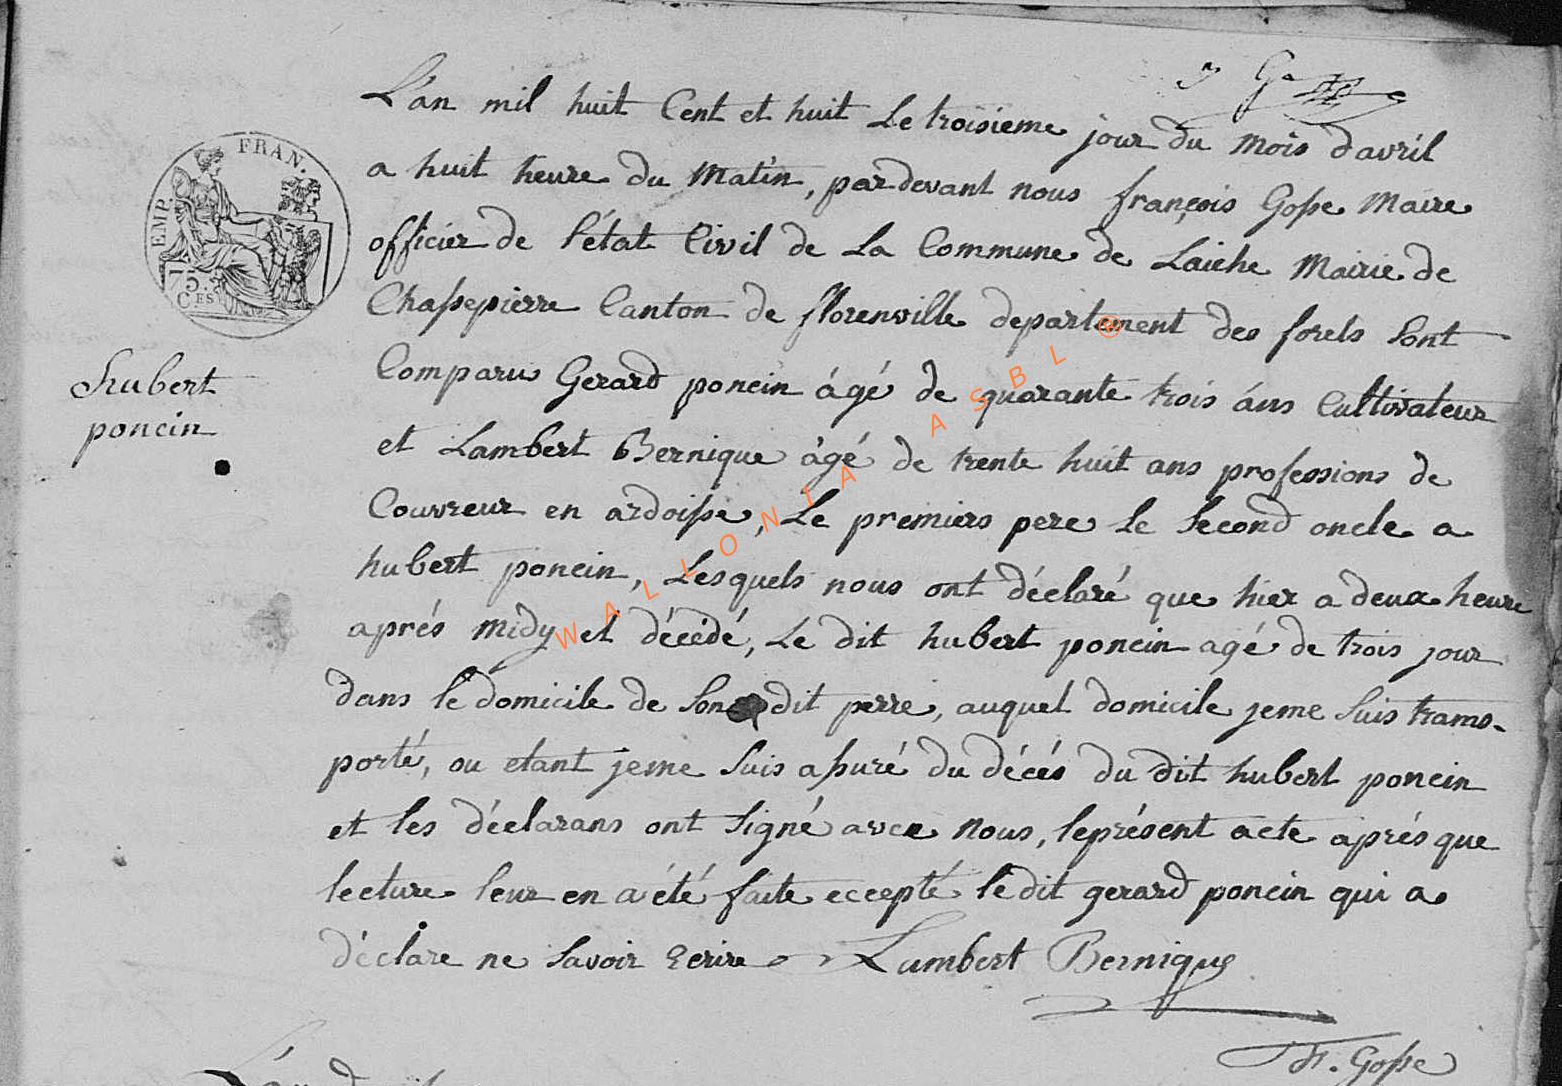 L'an mil huit Cent et huit Le troisieme jour du Mois d'avril
a huit heure du Matin, pardevant nous françois Gosse Maire
officier de l'état Civil de La Commune de Laiche Mairie de
Chassepierre Canton de florenville departement des forets Sont
Comparus Gerard poncin ágé de quarante trois áns Cultivateur
et Lambert Bernique ágé de trente huit ans professions de
Couvreur en ardoisse, Le premiers pere le Second oncle a
hubert poncin, Lesquels nous ont déclaré que hier a deux heure
aprés Midy et décédé, Le dit hubert poncin agé de trois jour
dans le domicile de Son dit perre, auquel domicile jeme Suis trans-
porté, ou etant jeme Suis assuré du décés du dit hubert poncin
et les déclarans ont Signé avec Nous, leprésent acte aprés que
lecture leur en a été faite eccepté le dit gerard poncin qui a
déclare ne Savoir Ecrire Lambert Bernique
f. Gosse
hubert
poncin
EMP. FRAN.
75.
CES
WALLONIA ASBL ®